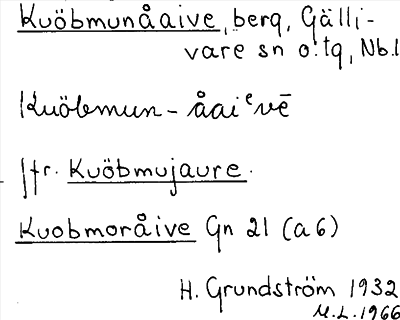 Kuöbmunåaive, berg, Gälli-
vare sn o. tg, Nb. l
Kuöbmun-åaiᵉvē
Jfr. Kuöbmujaure.
Kuobmoråive Gn 21 (a6)
H. Grundström 1932
M.L. 1966